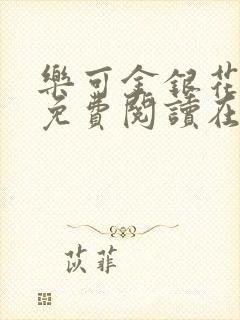 樂可金銀花
免費閱讀在
苡菲